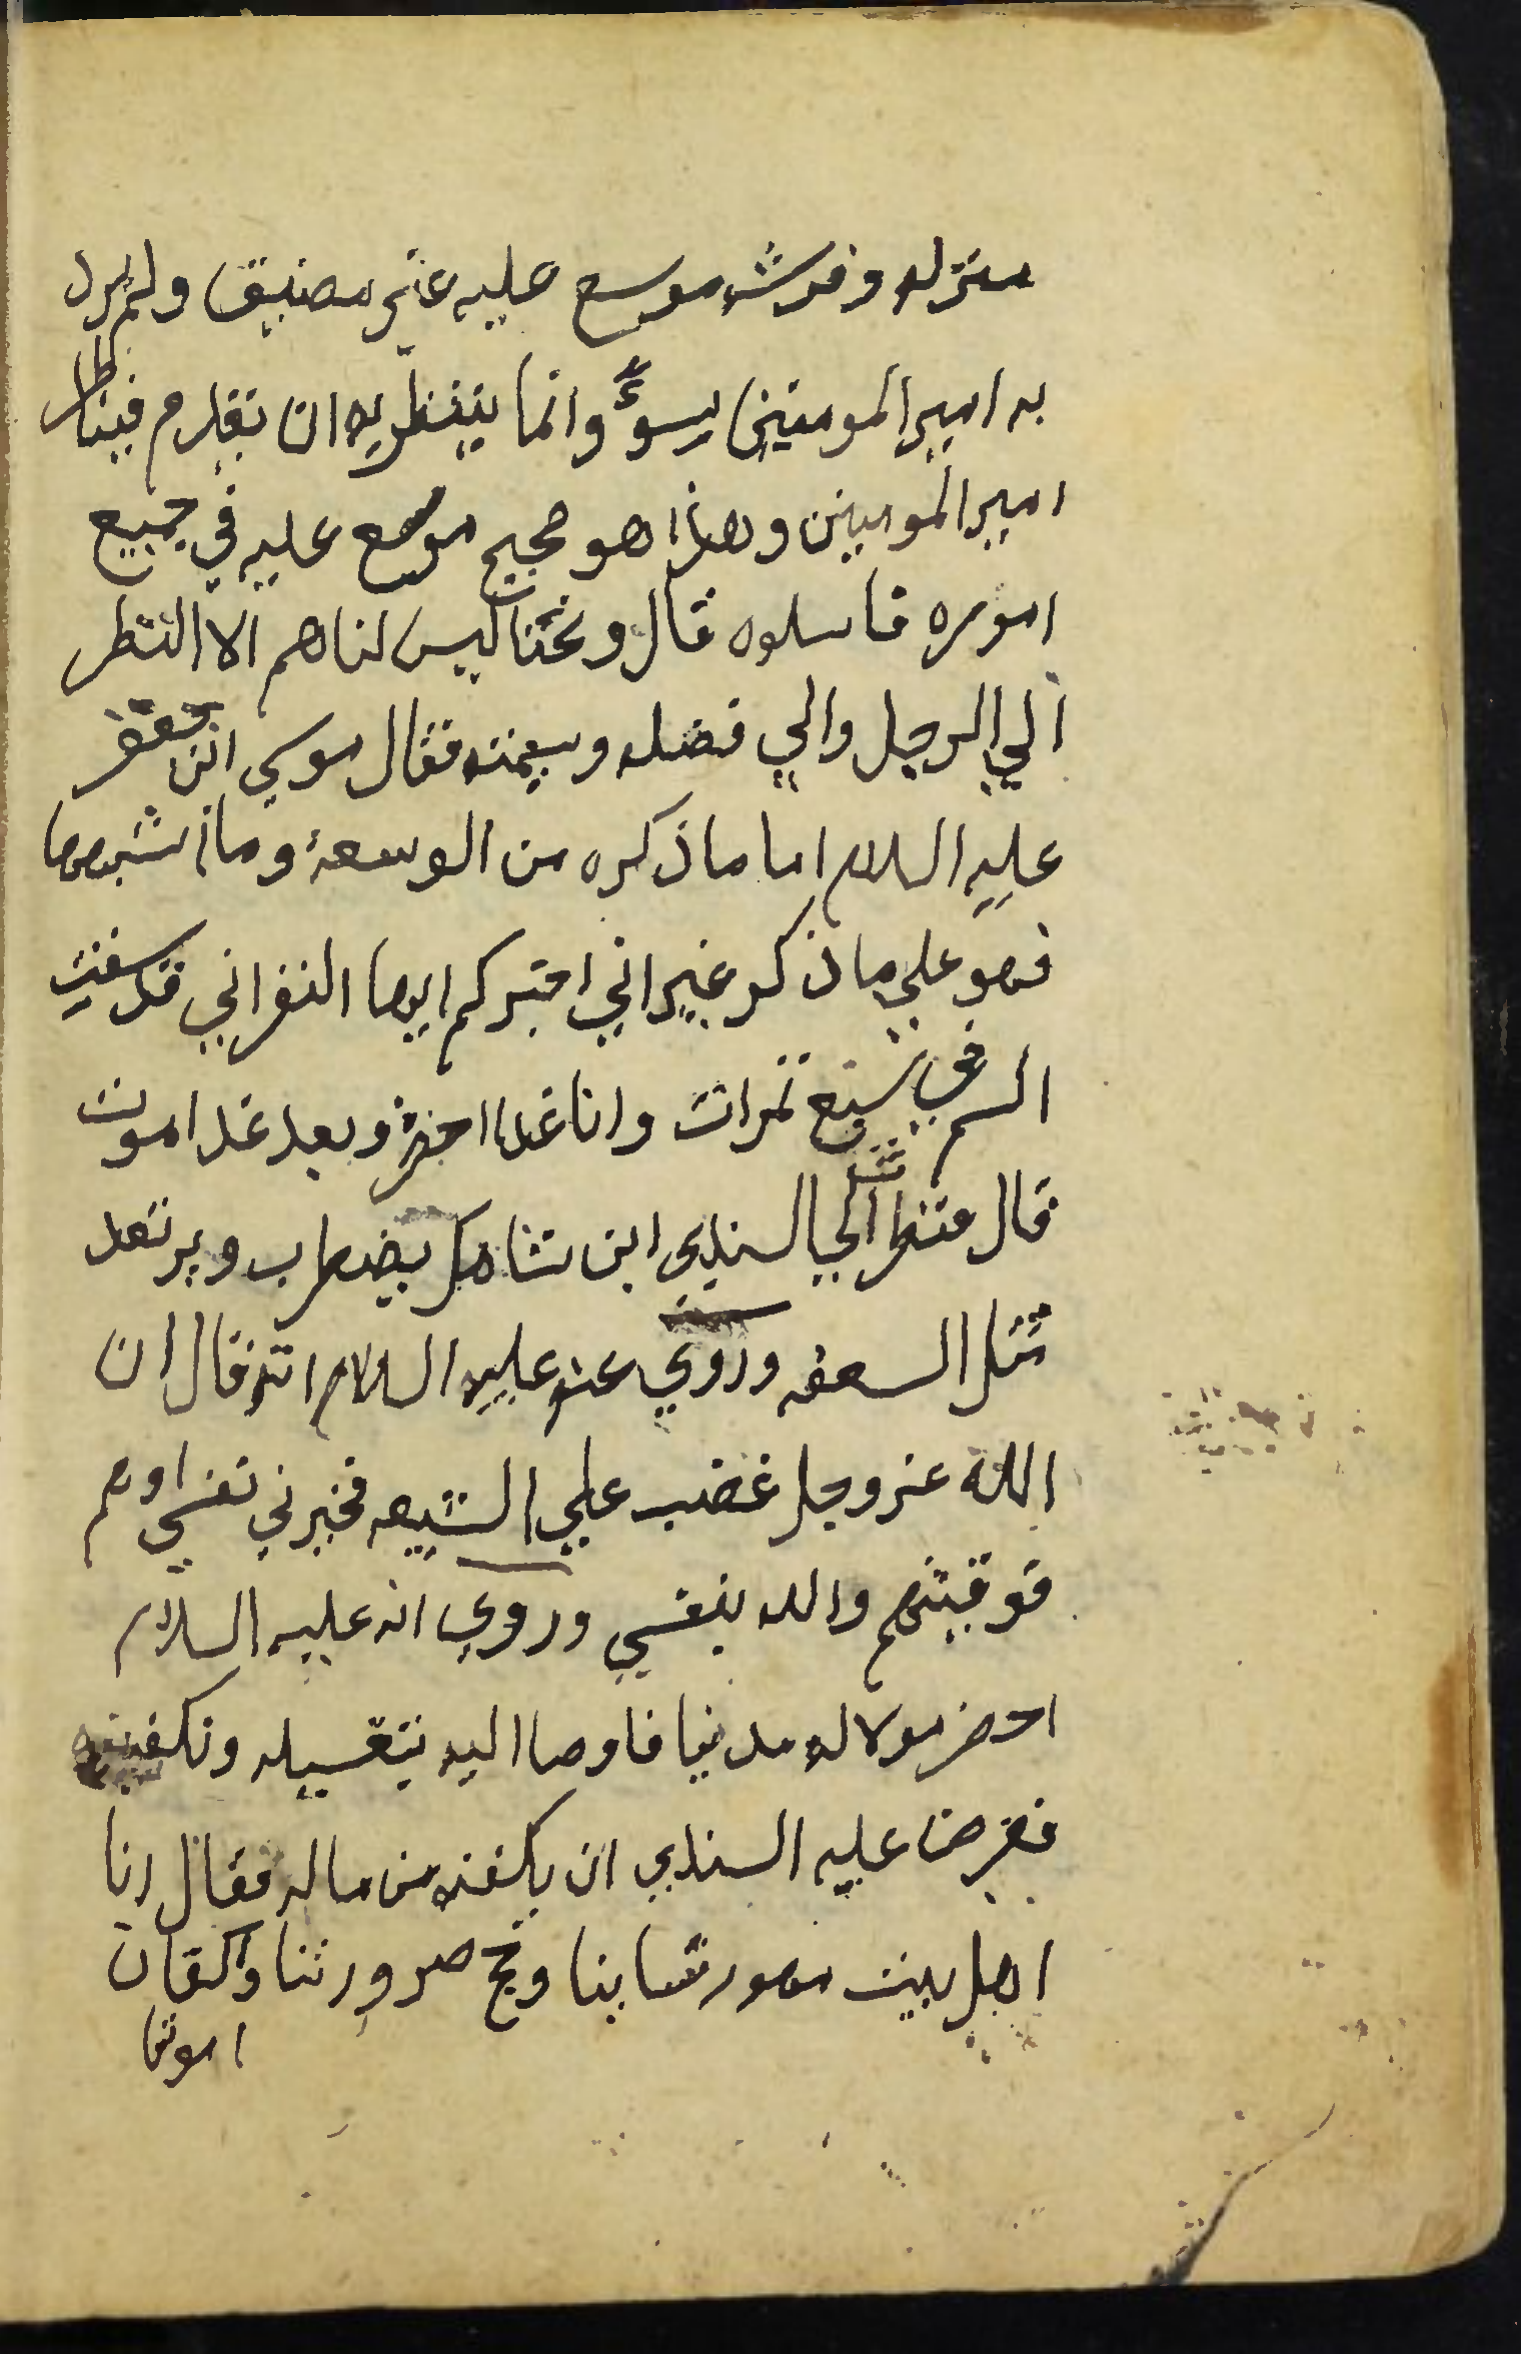 منزله وفرشه موسع عليه غير مضيق ولم يرد
به امير المومنين بسوءٍ وانما ينتظر به ان يقدم فيناظر
امير المومنين وهذا هو صحيح موسع عليه في جميع
اموره فاسلوه قال ونحنا ليس لناهم الا النظر
الي الرجل والي فضله وسمته فقال موسى ابن جعفر
عليه السلام اما ماذكره من الوسعة وما اشبهها
فهو علي ما ذكر غير اني اخبركم ايها النفراني قد سقيت
السم في سبع تمرات وانا غدا اخضر وبعد غد اموت
قال فنظر الي السندي ابن شاهك يضطرب ويرتعد
مثل السعفه وروي عنه عليه السلام انه قال ان
الله عز وجل غضب علي الشيعه فخيرني نفسي اوهم
فوقيتهم والله بنفسي وروي انه عليه السلام
احضر مولا له مدنيا فاوصا اليه بتغسيله وتكفينه
فعرض عليه السندي ان يكفنه من ماله فقال انا
اهل بيت مهور نسابنا وحج صرورتنا واكفان
اموتنا